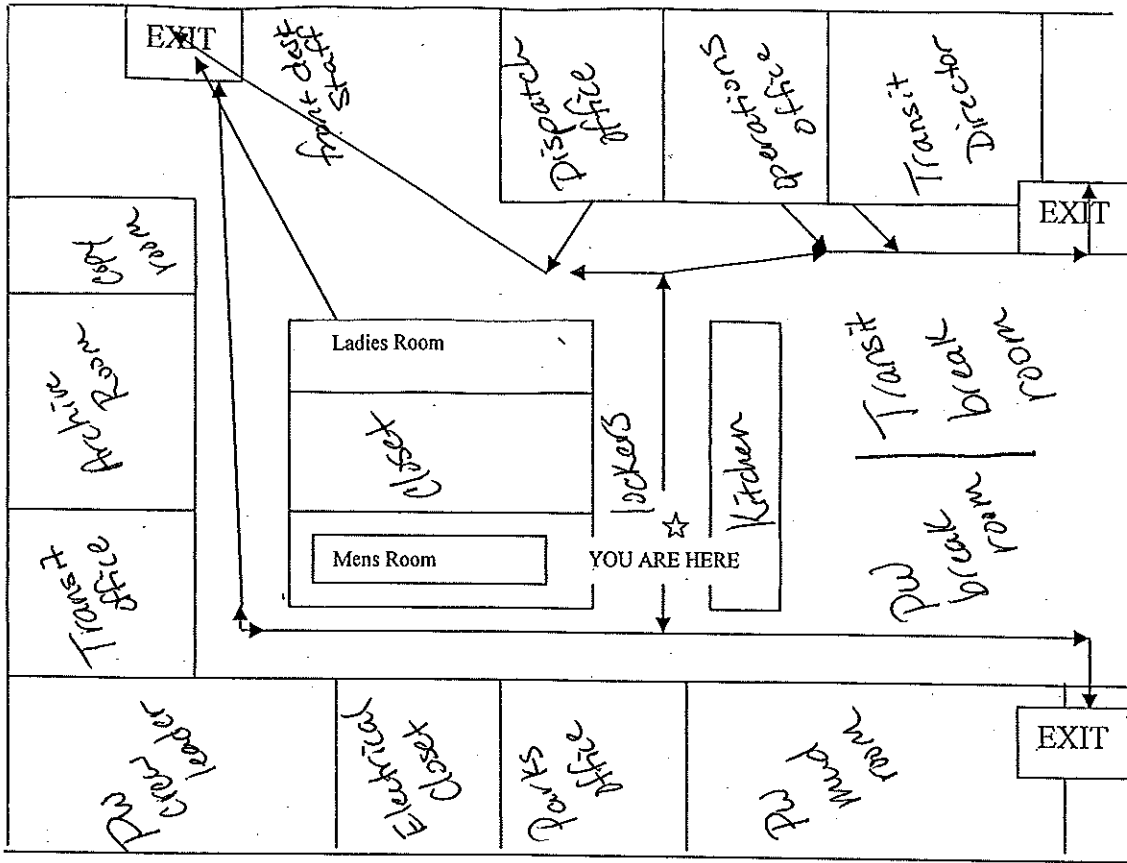 EXIT
front desk
staff
Dispatch
office
operations
office
Transit
Director
EXIT
Copy
room
Archive
Room
Transit
office
Ladies Room
Closet
Mens Room
lockers
Kitchen
YOU ARE HERE
Transit
break
room
PW
break
room
PW
crew
leader
Electrical
Closet
Parks
office
PW
mud
room
EXIT